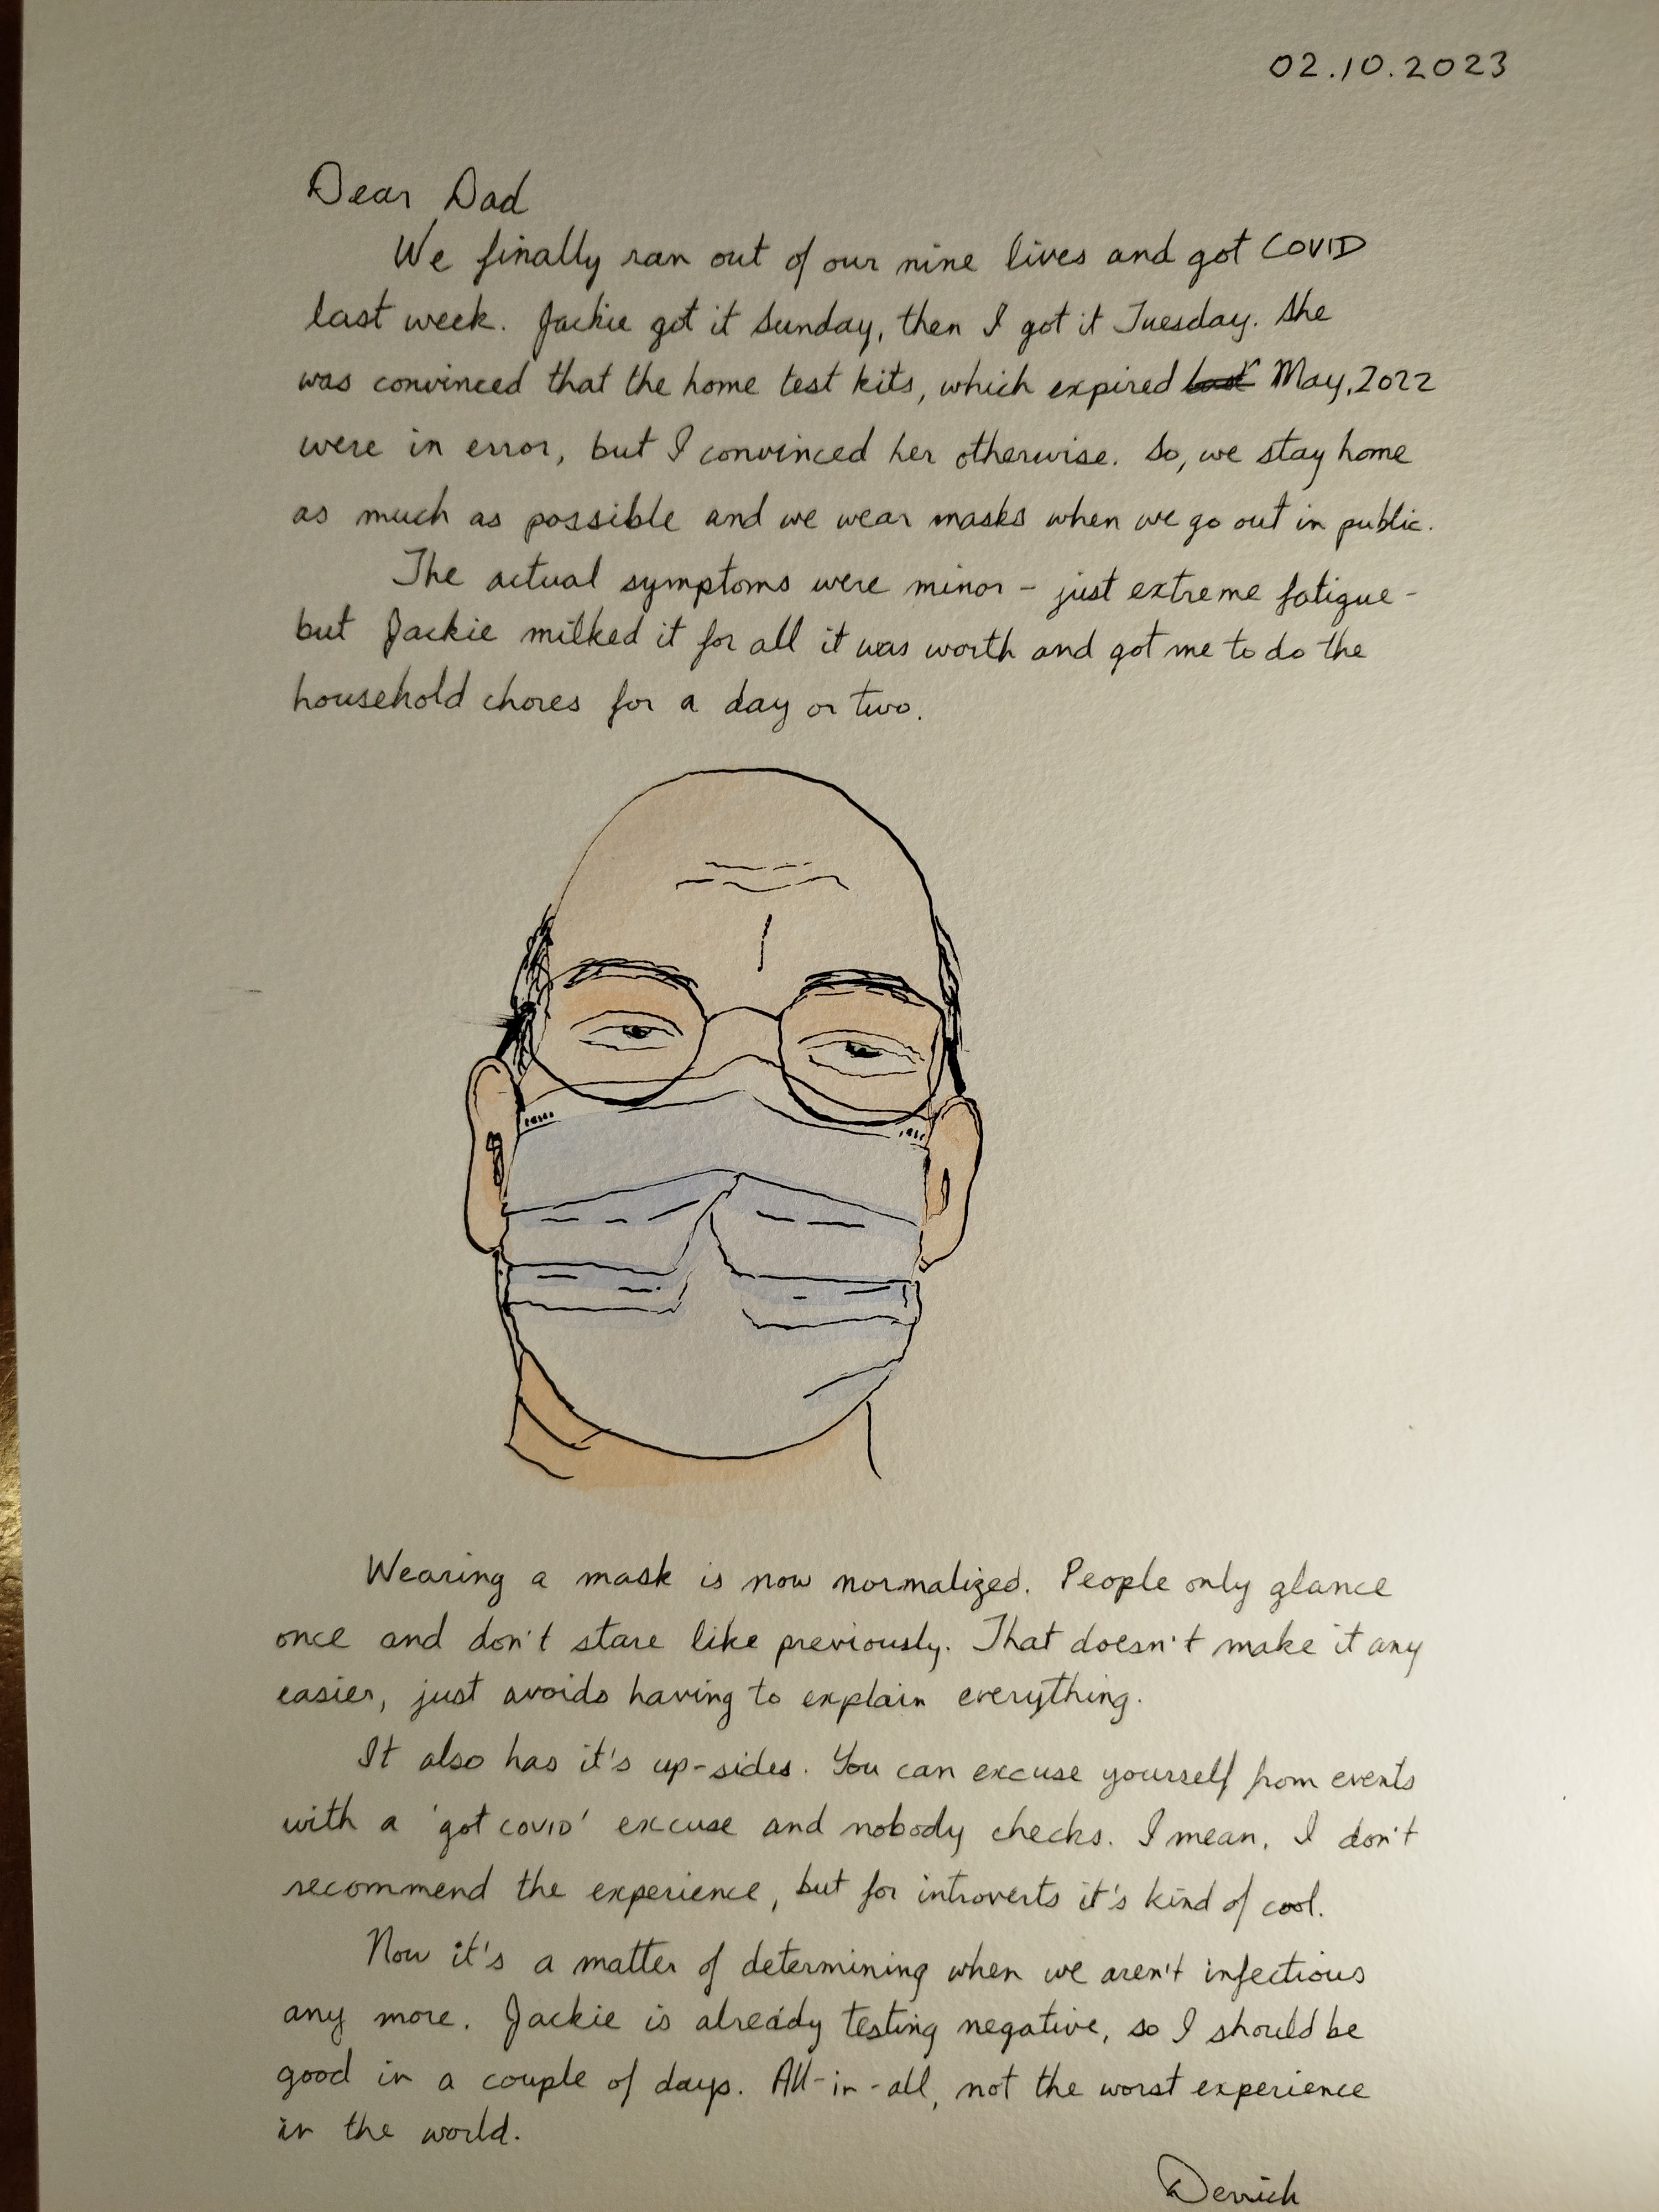 02.10.2023
Dear Dad
We finally ran out of our nine lives and got COVID
last week. Jackie got it Sunday, then I got it Tuesday. She
was convinced that the home test kits, which expired last May, 2022
were in error, but I convinced her otherwise. So, we stay home
as much as possible and we wear masks when we go out in public.
The actual symptoms were minor - just extreme fatigue -
but Jackie milked it for all it was worth and got me to do the
household chores for a day or two.
Wearing a mask is now normalized. People only glance
once and don't stare like previously. That doesn't make it any
easier, just avoids having to explain everything.
It also has it's up-sides. You can excuse yourself from events
with a 'got COVID' excuse and nobody checks. I mean, I don't
recommend the experience, but for introverts it's kind of cool.
Now it's a matter of determining when we aren't infectious
any more. Jackie is already testing negative, so I should be
good in a couple of days. All-in-all, not the worst experience
in the world.
Derrick